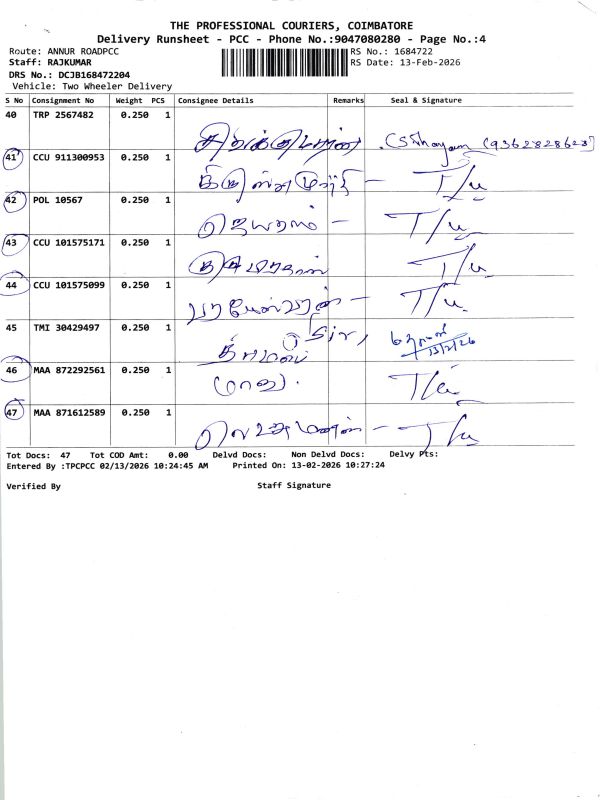 THE PROFESSIONAL COURIERS, COIMBATORE
Delivery Runsheet - PCC - Phone No.:9047080280 - Page No.:4
Route: ANNUR ROADPCC
RS No.: 1684722
Staff: RAJKUMAR
RS Date: 13-Feb-2026
DRS No.: DCJB168472204
Vehicle: Two Wheeler Delivery
S No Consignment No Weight PCS Consignee Details Remarks Seal & Signature
40 TRP 2567482 0.250 1
(9362828628)
41 CCU 911300953 0.250 1
T/u
42 POL 10567 0.250 1
T/u
43 CCU 101575171 0.250 1
T/u
44 CCU 101575099 0.250 1
T/u
45 TMI 30429497 0.250 1
13/2/26
46 MAA 872292561 0.250 1
T/u
47 MAA 871612589 0.250 1
T/u
Tot Docs: 47 Tot COD Amt: 0.00 Delvd Docs: Non Delvd Docs: Delvy Pts:
Entered By :TPCPCC 02/13/2026 10:24:45 AM Printed On: 13-02-2026 10:27:24
Verified By Staff Signature